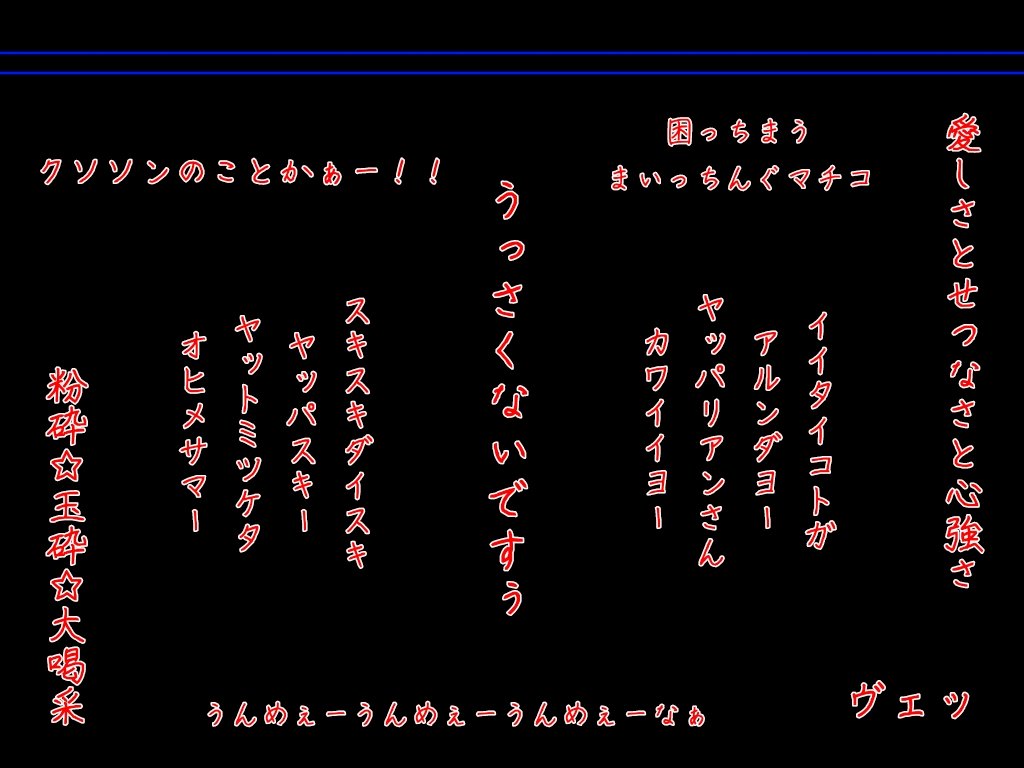 愛しさとせつなさと心強さ
困っちまう
まいっちんぐマチコ
イイタイコトが
アルンダヨー
ヤッパリアンさん
カワイイヨー
うっさくないですぅ
クソソンのことかぁー！！
スキスキダイスキ
ヤッパスキー
ヤットミツケタ
オヒメサマー
粉砕☆玉砕☆大喝采
うんめぇーうんめぇーうんめぇーなぁ
ヴェッ